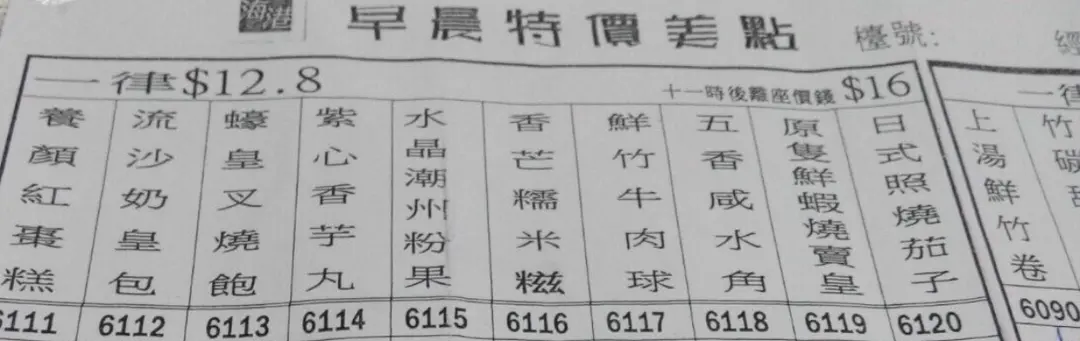 海港
早晨特價美點
檯號:
一律$12.8
十一時後離座價錢$16
養顏紅棗糕
流沙奶皇包
蠔皇叉燒飽
紫心香芋丸
水晶潮州粉果
香芒糯米糍
鮮竹牛肉球
五香咸水角
原隻鮮蝦燒賣皇
日式照燒茄子
6111
6112
6113
6114
6115
6116
6117
6118
6119
6120
一律
上湯鮮竹卷
竹碳
6090